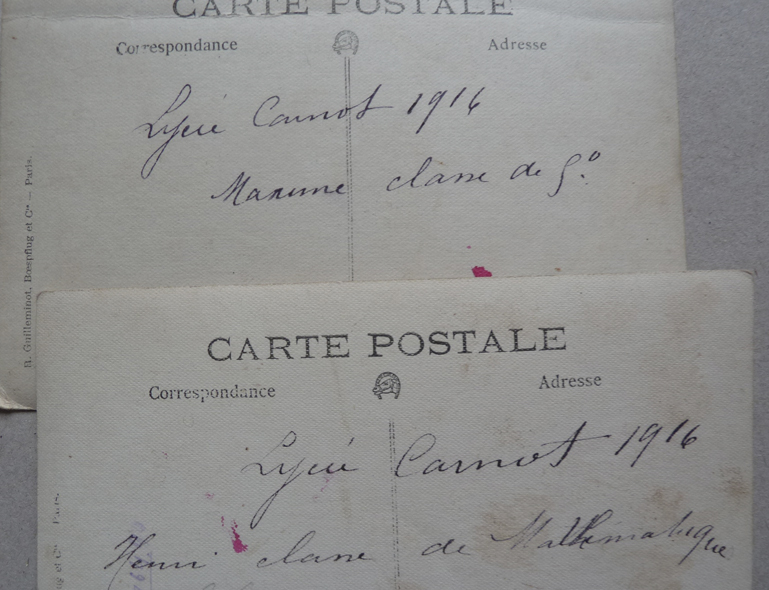 CARTE POSTALE
Correspondance
Adresse
Lycée Carnot 1916
Maxime classe de 5.º
R. Guilleminot, Bœspflug et Cie — Paris.
CARTE POSTALE
Correspondance
Adresse
Lycée Carnot 1916
Henri classe de Mathématique
ug et Cie Paris.